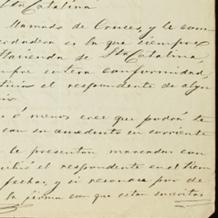 Sta Catalina
Llamado de Cruces, y le com
verdadera es la que siempre
Hacienda de Sta Catalina,
entera conformidad,
el respondente de algun
ó menos cree que podrá te
can su ascendente en corriente
le presentan marcadas con
el respondente en el tiem
fecha, y si reconoce por de
la firma con que están suscritas